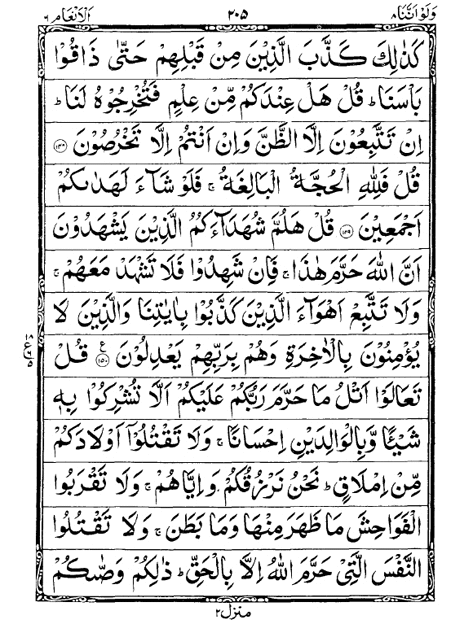 وَلَوْ اَنَّنَا ٨ ٢٠٥ اَلْاَنْعَام ٦
كَذٰلِكَ كَذَّبَ الَّذِيْنَ مِنْ قَبْلِهِمْ حَتّٰى ذَاقُوْا
بَاْسَنَا ؕ قُلْ هَلْ عِنْدَكُمْ مِّنْ عِلْمٍ فَتُخْرِجُوْهُ لَنَا ؕ
اِنْ تَتَّبِعُوْنَ اِلَّا الظَّنَّ وَاِنْ اَنْتُمْ اِلَّا تَخْرُصُوْنَ ﴿۱۴۸﴾
قُلْ فَلِلّٰهِ الْحُجَّةُ الْبَالِغَةُ ۚ فَلَوْ شَآءَ لَهَدٰىكُمْ
اَجْمَعِيْنَ ﴿۱۴۹﴾ قُلْ هَلُمَّ شُهَدَآءَكُمُ الَّذِيْنَ يَشْهَدُوْنَ
اَنَّ اللّٰهَ حَرَّمَ هٰذَا ۚ فَاِنْ شَهِدُوْا فَلَا تَشْهَدْ مَعَهُمْ ۚ
وَلَا تَتَّبِعْ اَهْوَآءَ الَّذِيْنَ كَذَّبُوْا بِاٰيٰتِنَا وَالَّذِيْنَ لَا
يُؤْمِنُوْنَ بِالْاٰخِرَةِ وَهُمْ بِرَبِّهِمْ يَعْدِلُوْنَ ﴿۱۵۰﴾ ع قُلْ
تَعَالَوْا اَتْلُ مَا حَرَّمَ رَبُّكُمْ عَلَيْكُمْ اَلَّا تُشْرِكُوْا بِهٖ
شَيْـًٔا وَّبِالْوَالِدَيْنِ اِحْسَانًا ۚ وَلَا تَقْتُلُوْۤا اَوْلَادَكُمْ
مِّنْ اِمْلَاقٍ ؕ نَحْنُ نَرْزُقُكُمْ وَاِيَّاهُمْ ۚ وَلَا تَقْرَبُوا
الْفَوَاحِشَ مَا ظَهَرَ مِنْهَا وَمَا بَطَنَ ۚ وَلَا تَقْتُلُوا
النَّفْسَ الَّتِيْ حَرَّمَ اللّٰهُ اِلَّا بِالْحَقِّ ؕ ذٰلِكُمْ وَصّٰىكُمْ
منزل ٢